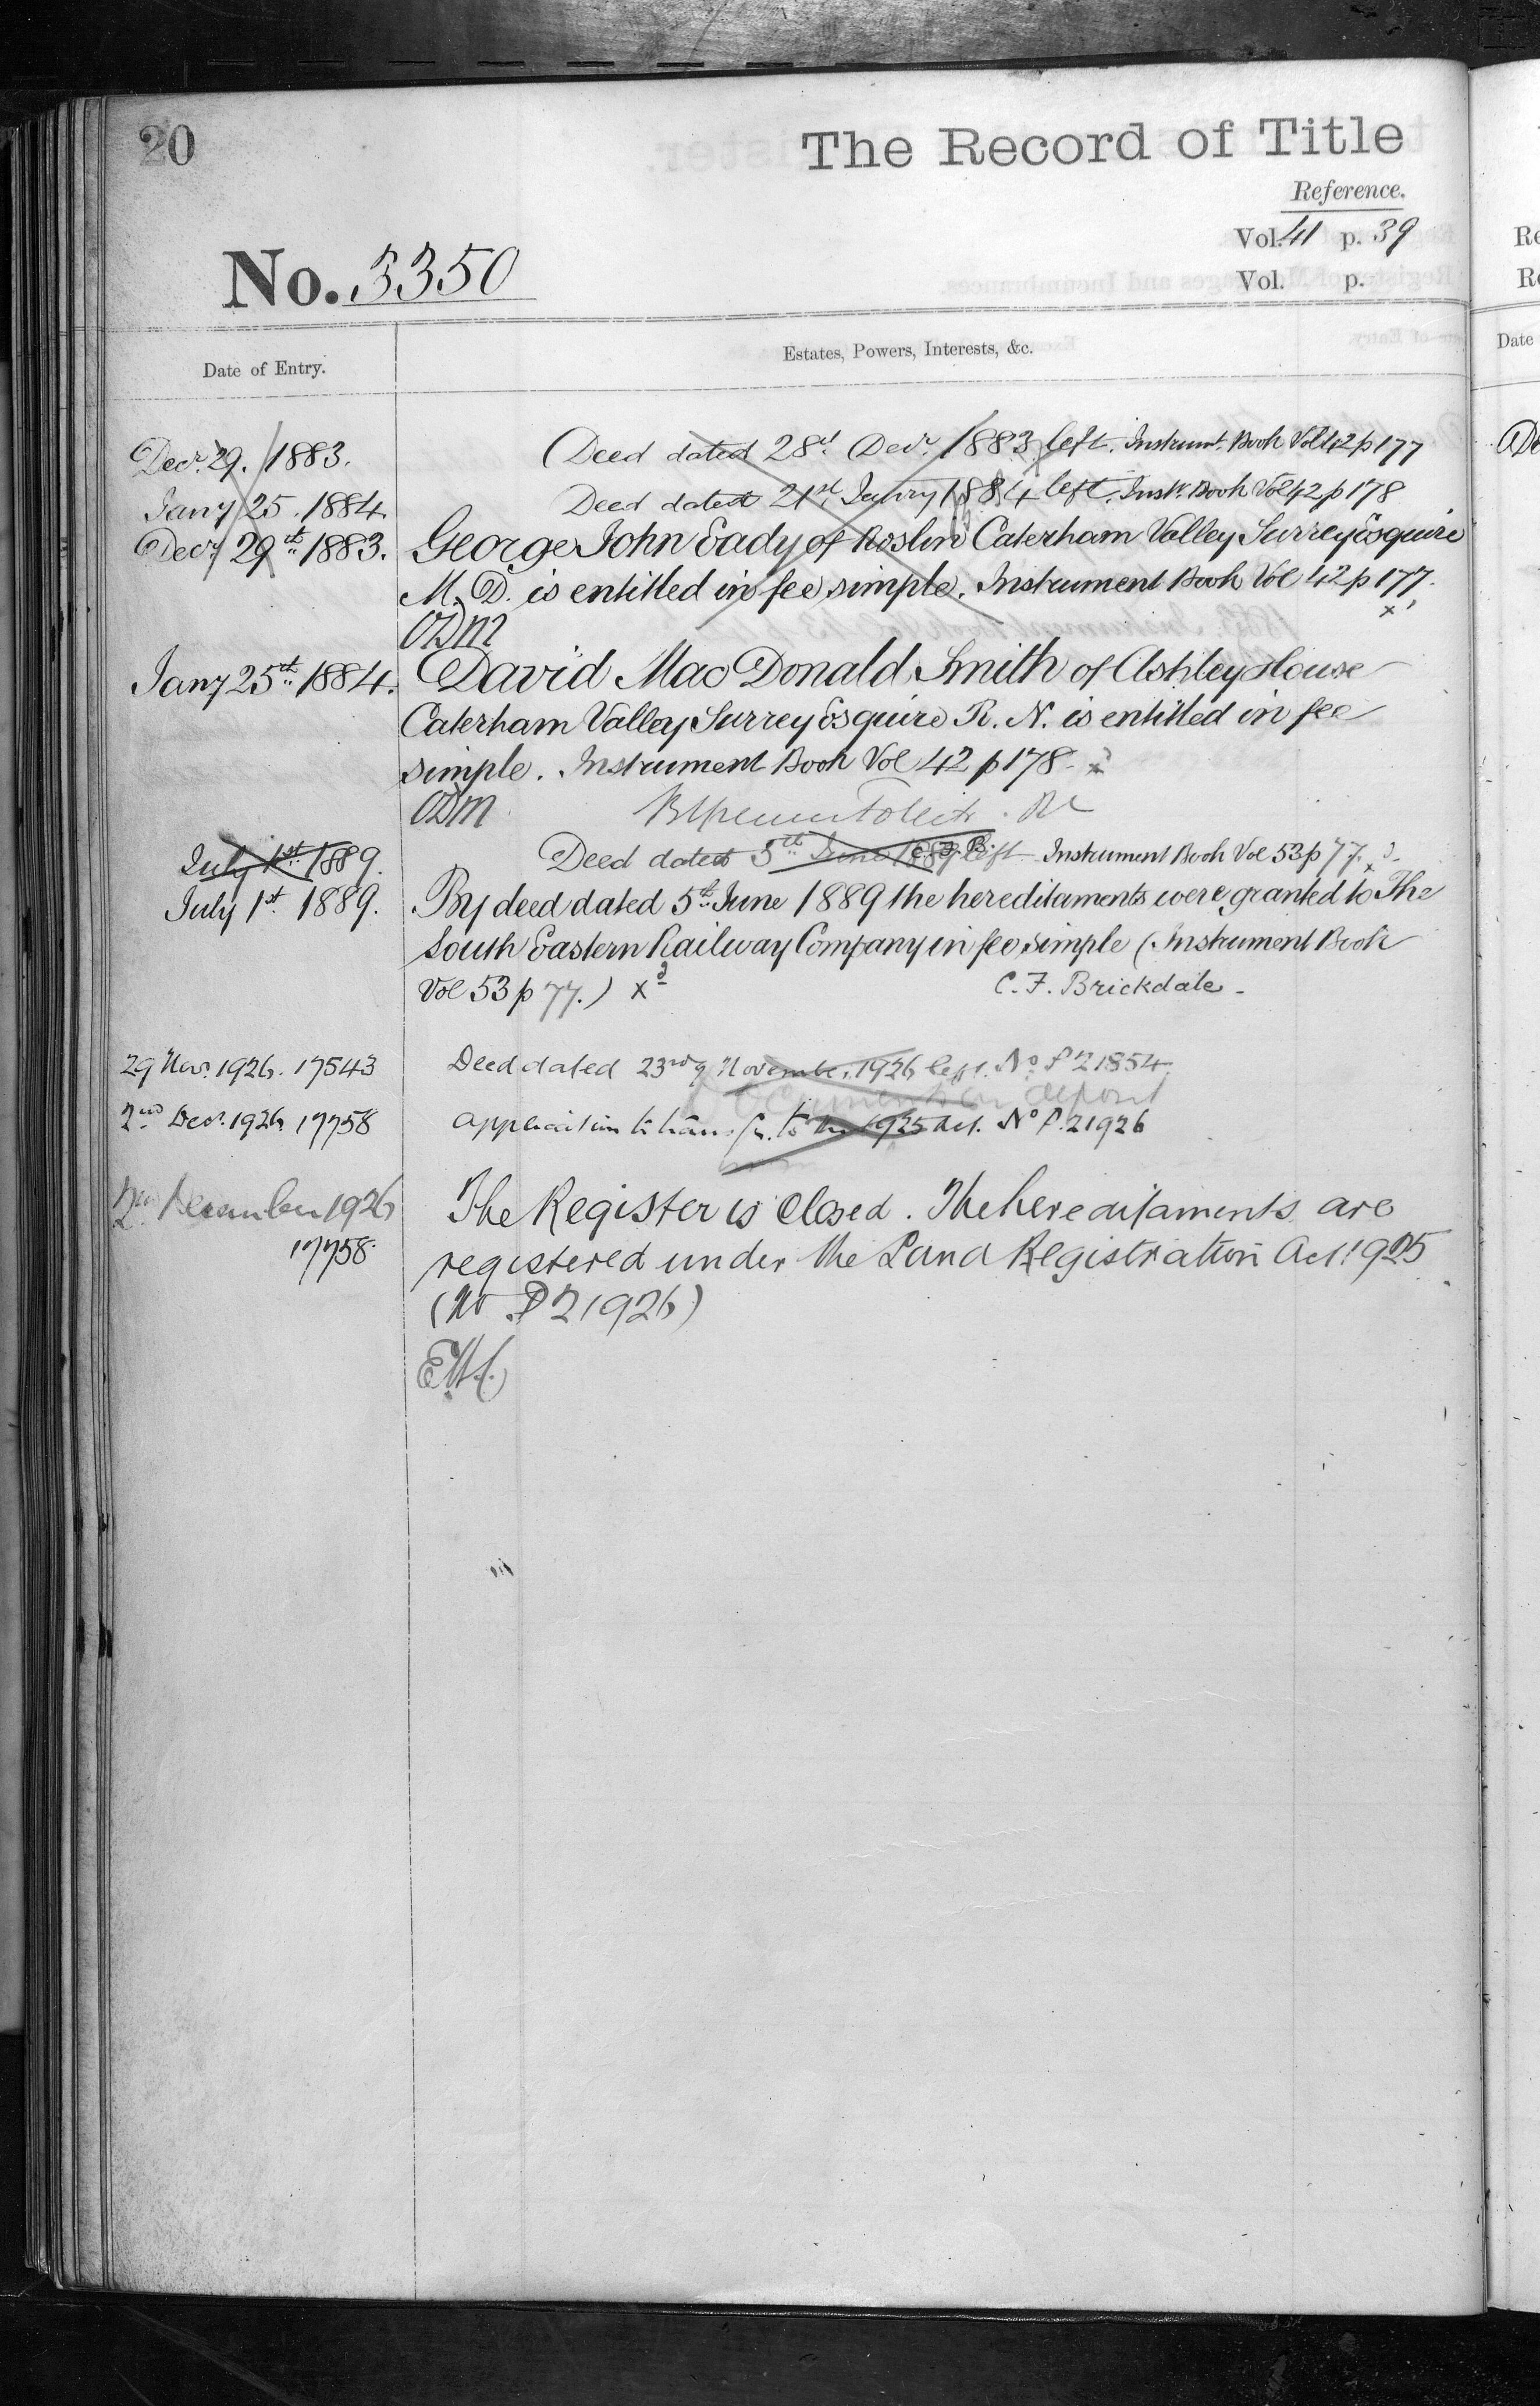 20
The Record of Title
Reference.
Vol. 41 p. 39
No. 3350
Vol. p.
Date of Entry.
Estates, Powers, Interests, &c.
Decr. 29. 1883. Deed dated 28th Decr. 1883 left. Instrumt. Book Vol 42 p 177
Jany 25. 1884. Deed dated 21st Janry 1884 left. Instt. Book Vol 42 p 178
Decr 29th 1883. George John Eady of Roslin Caterham Valley Surrey Esquire
M.D. is entitled in fee simple. Instrument Book Vol 42 p 177.
Jany 25th 1884. David MacDonald Smith of Ashley House
Caterham Valley Surrey Esquire R.N. is entitled in fee
simple. Instrument Book Vol 42 p 178.
July 1st 1889. Deed dated 5th June 1889 left Instrument Book Vol 53 p 77.
July 1st 1889. By deed dated 5th June 1889 the hereditaments were granted to The
South Eastern Railway Company in fee simple (Instrument Book
Vol 53 p 77.) C. F. Brickdale
29 Nov. 1926. 17543 Deed dated 23rd November 1926 left. No P21854
deposit
2nd Decr. 1926 17758 Application to transfr. to the 1925 Act. No P.21926
2nd December 1926 The Register is closed. The hereditaments are
17758. registered under the Land Registration Act 1925
(No P21926)